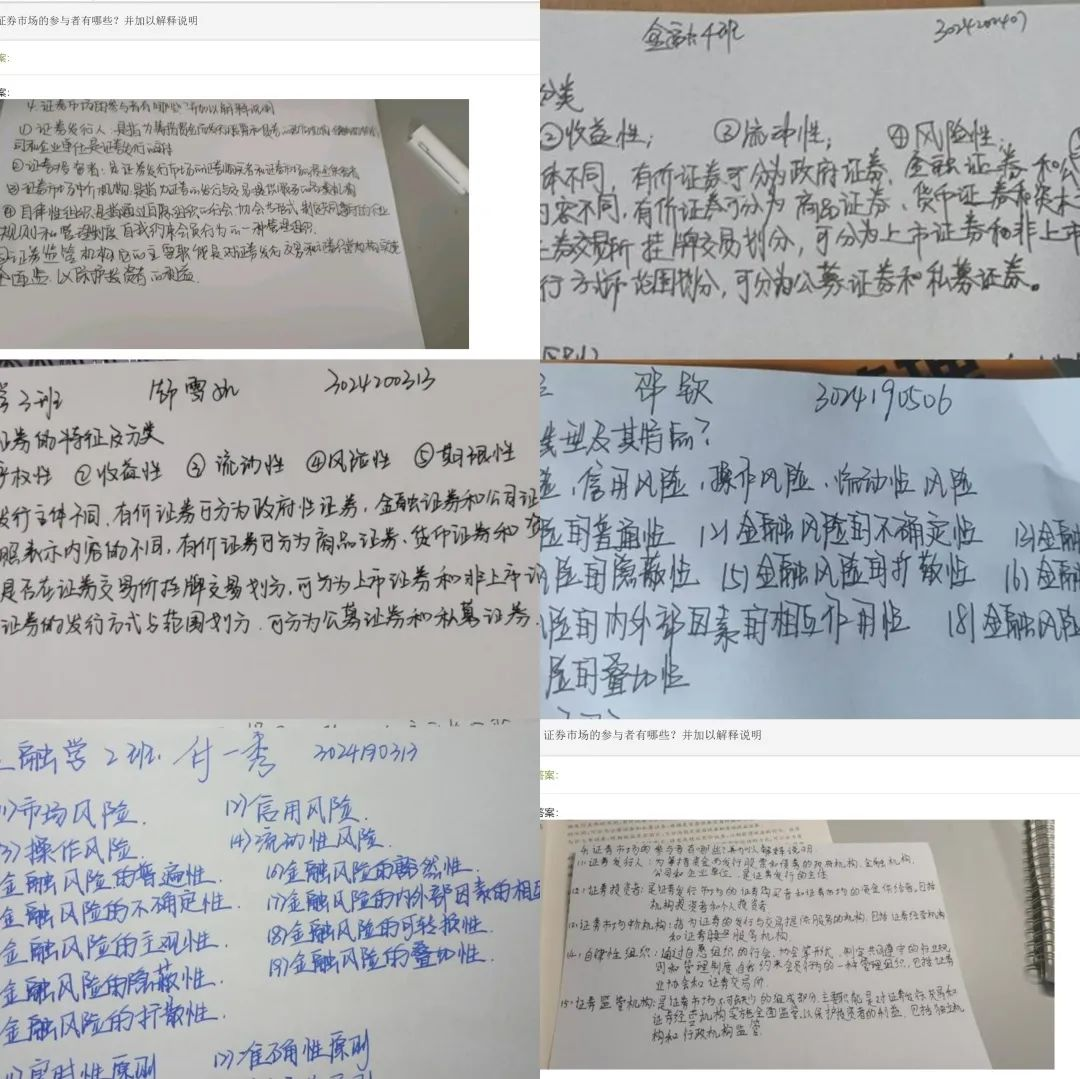 证券市场的参与者有哪些？并加以解释说明
案：
案：
4.证券市场的参与者有哪些?并加以解释说明
(1)证券发行人
司和企业单位是证券发行的主体
②证券投资者：是证券发行市场的证券购买者和证券市场的资金供给者
③证券市场中介机构是指为证券的发行与交易提供服务的各类机构
④自律性组织是指通过自愿组织的行会、协会等形式,制定共同遵守的行业
规则和管理制度,自我约束会员行为的一种管理组织.
证券监管机构它的主要职能是对证券发行、交易和证券经营机构实施
全面监,以保护投资者的利益.
金融大4班 3024200407
分类
②收益性; ③流动性; ④风险性;
体不同,有价证券可分为政府证券、金融证券和公
内容不同,有价证券可分为商品证券、货币证券和资本
券交易所挂牌交易划分,可分为上市证券和非上市
行方式和范围划分,可分为公募证券和私募证券。
学3班 舒雪 3024200313
证券的特征及分类
产权性 ②收益性 ③流动性 ④风险性 ⑤期限性
发行主体不同,有价证券可分为政府性证券,金融证券和公司证
照表示内容的不同,有价证券可分为商品证券、货币证券和资
是否在证券交易所挂牌交易划分,可分为上市证券和非上市证
证券的发行方式与范围划分.可分为公募证券和私募证券.
邵钦 3024190506
类型及其特点?
险、信用风险、操作风险、流动性风险
险的普遍性 (2)金融风险的不确定性 (3)金融
风险的隐蔽性 (5)金融风险的扩散性 (6)金融
风险的内外部因素的相互作用性 (8)金融风险
险的叠加性
金融学2班. 付一秀 3024190313
(1)市场风险. (2)信用风险.
(3)操作风险. (4)流动性风险.
金融风险的普遍性. (6)金融风险的豁然性.
金融风险的不确定性. (7)金融风险的内外部因素的相互
金融风险的主观性. (8)金融风险的可转换性.
金融风险的隐蔽性. (9)金融风险的叠加性.
金融风险的扩散性.
(1)实时性原则 (2)准确性原则
证券市场的参与者有哪些？并加以解释说明
答案：
答案：
4.证券市场的参与者有哪些?并加以解释说明.
(1)证券发行人:为筹措资金而发行股票和债券的政府机构、金融机构、
公司和企业单位.是证券发行的主体
(2)证券投资者:是证券发行市场的证券购买者和证券市场的资金供给者,包括
机构投资者和个人投资者
(3)证券市场中介机构:指为证券的发行与交易提供服务的机构,包括证券经营机构
和证券服务机构.
(4)自律性组织:通过自愿组织的行会、协会等形式,制定共同遵守的行业规
则和管理制度,自我约束会员行为的一种管理组织.包括证券
业协会和证券交易所.
(5)证券监管机构:是证券市场不可缺少的组成部分,主要职能是对证券发行、交易和
证券经营机构实施全面监管,以保护投资者的利益.包括独立机
构和行政机构监管.